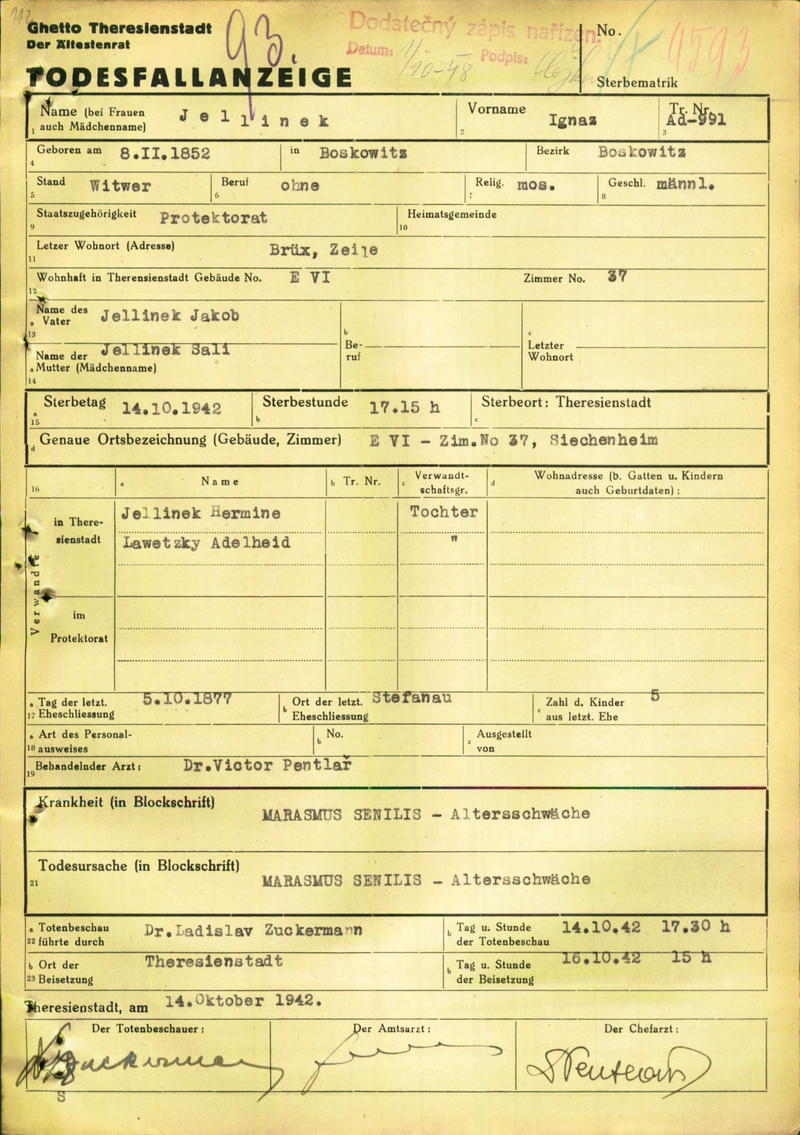 Ghetto Theresienstadt
Der Ältestenrat
TODESFALLANZEIGE
93.
Dodatečný zápis nařízen
Datum: 11/10-48 Podpis:
No. 9593
Sterbematrik
Name (bei Frauen auch Mädchenname) Jellinek
1
Vorname Ignaz
2
Tr. Nr. Ad-991
3
Geboren am 8.II.1852 in Boskowitz Bezirk Boskowitz
4
Stand Witwer Beruf ohne Relig. mos. Geschl. männl.
5 6 7 8
Staatszugehörigkeit Protektorat Heimatsgemeinde
9 10
Letzer Wohnort (Adresse) Brüx,
11
Wohnhaft in Therensienstadt Gebäude No. E VI Zimmer No. 37
12
Name des Vater Jellinek Jakob
a 13
b Beruf
c Letzter Wohnort
Name der Mutter (Mädchenname) Jellinek Sali
a 14
Sterbetag 14.10.1942 Sterbestunde 17.15 h Sterbeort: Theresienstadt
a 15 b c
d Genaue Ortsbezeichnung (Gebäude, Zimmer) E VI - Zim.No 37, Siechenheim
16 a Name b Tr. Nr. c Verwandt-schaftsgr. d Wohnadresse (b. Gatten u. Kindern auch Geburtdaten) :
Verwandte
in There-sienstadt
Jellinek Hermine Tochter
Lawetzky Adelheid "
im Protektorat
a 17 Tag der letzt. Eheschliessung 5.10.1877 b Ort der letzt. Eheschliessung Stefanau c Zahl d. Kinder aus letzt. Ehe 5
a 18 Art des Personal-ausweises b No. c Ausgestellt von
Behandelnder Arzt: Dr.Victor Pentlař
19
Krankheit (in Blockschrift)
MARASMUS SENILIS - Altersschwäche
Todesursache (in Blockschrift)
21 MARASMUS SENILIS - Altersschwäche
a 22 Totenbeschau führte durch Dr.Ladislav Zuckermann b Tag u. Stunde der Totenbeschau 14.10.42 17.30 h
b 23 Ort der Beisetzung Theresienstadt b Tag u. Stunde der Beisetzung 16.10.42 15 h
Theresienstadt, am 14.Oktober 1942.
Der Totenbeschauer: Der Amtsarzt: Der Chefarzt:
S